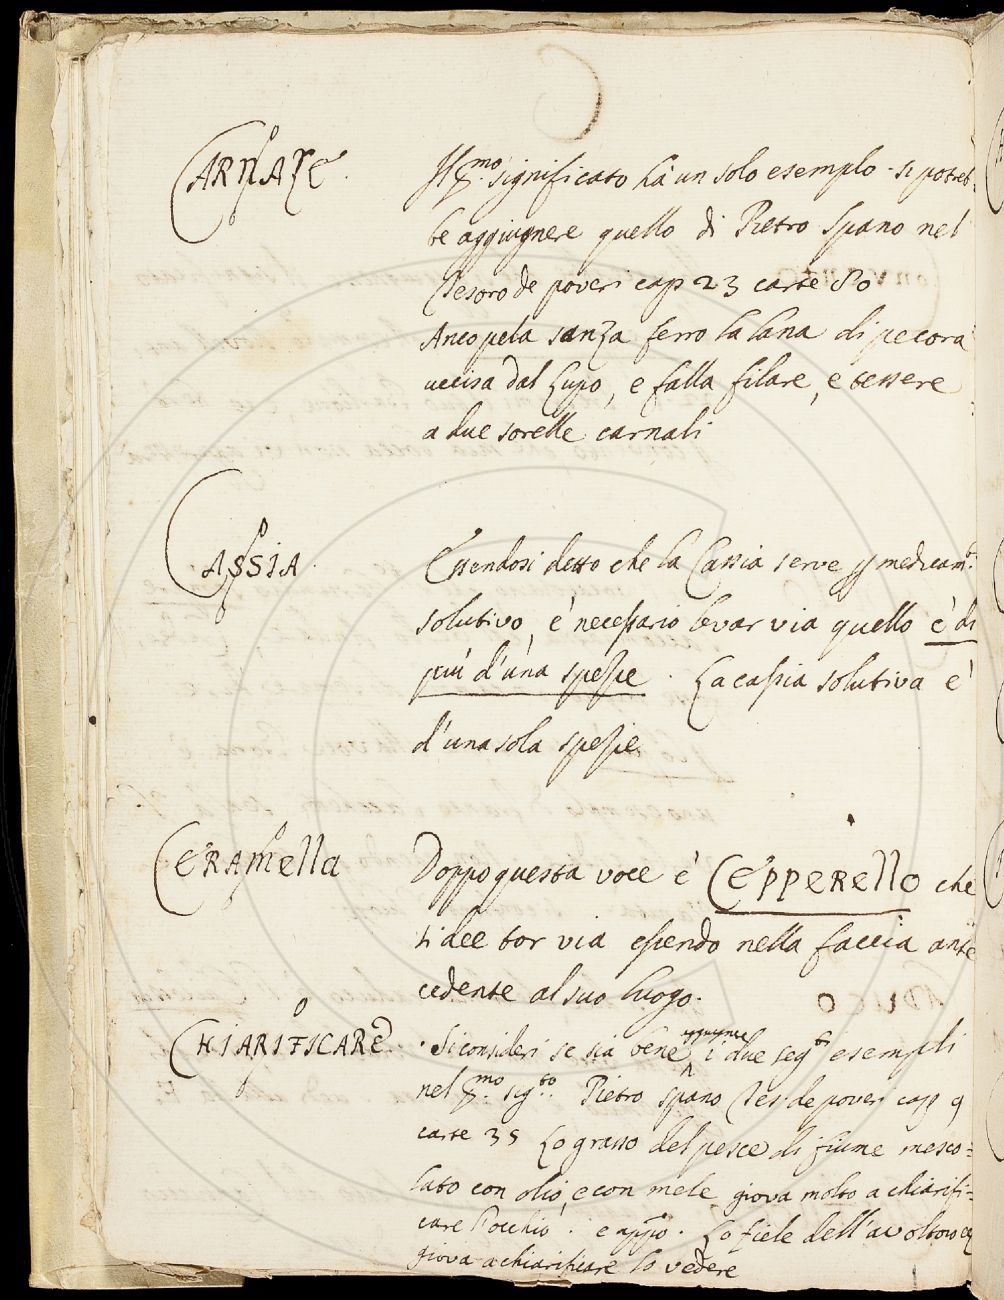 C
CARNALE. Il pmo. significato hà un solo esempio. si potreb
be aggiugnere quello di Pietro Spano nel
Tesoro de poveri cap 23 carte 80
Anco pela sanza ferro la lana di pecora
uccisa dal Lupo, e falla filare, e tessere
a due sorelle carnali
CASSIA. Essendosi detto che la Cassia serve p medicamto.
solutivo, è necessario levar via quello è di
più d'una spezie. La cassia solutiva è
d'una sola spezie
CERAMELLA Doppo questa voce è CEPPERELLO che
si dee tor via essendo nella faccia ante
cedente al suo luogo.
CHIARIFICARE. Si consideri se sia bene aggiugnere i due segti esempli
nel pmo. sigto. Pietro Spano Tes: de poveri cap 9
carte 35 Lo grasso del pesce di fiume mesco=
lato con olio, e con mele giova molto a chiarifi=
care l'occhio. e appo. Lo fiele dell'avoltoio
giova a chiarificare lo vedere